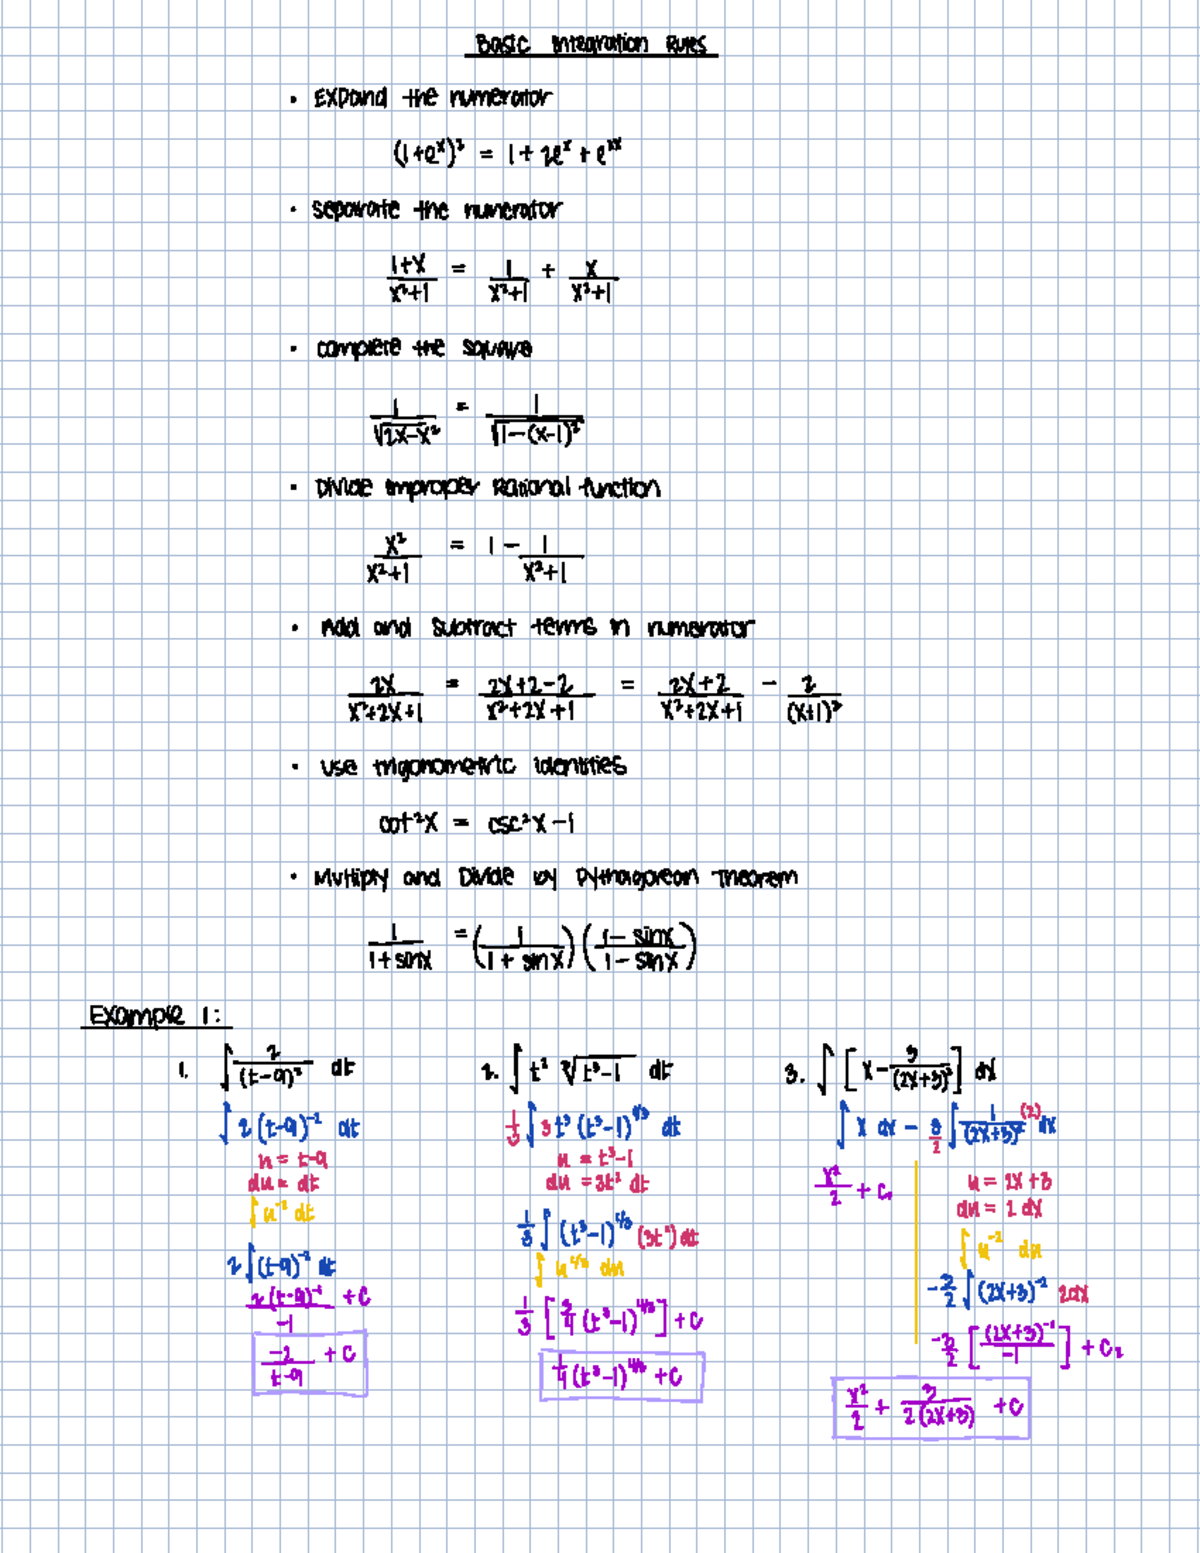 Basic Integration Rules
• Expand the numerator
(1+e^x)² = 1 + 2e^x + e^2x
• separate the numerator
(1+x)/(x²+1) = 1/(x²+1) + x/(x²+1)
• complete the square
1/√(2x-x²) = 1/√(1-(x-1)²)
• Divide improper Rational function
x²/(x²+1) = 1 - 1/(x²+1)
• Add and subtract terms in numerator
2x/(x²+2x+1) = (2x+2-2)/(x²+2x+1) = (2x+2)/(x²+2x+1) - 2/(x+1)²
• use trigonometric identities
cot²x = csc²x - 1
• Multiply and Divide by Pythagorean Theorem
1/(1+sinx) = (1/(1+sinx)) ((1-sinx)/(1-sinx))
Example 1:
1. ∫ 2/(t-9)² dt
∫ 2(t-9)^-2 dt
u = t-9
du = dt
∫ u^-2 dt
2∫(t-9)^-2 dt
2(t-9)^-1/-1 + C
-2/(t-9) + C
2. ∫ t² ∛(t³-1) dt
1/3 ∫ 3t²(t³-1)^1/3 dt
u = t³-1
du = 3t² dt
1/3 ∫ (t³-1)^1/3 (3t²) dt
∫ u^1/3 du
1/3 [3/4 (t³-1)^4/3] + C
1/4 (t³-1)^4/3 + C
3. ∫ [x - 3/(2x+3)²] dx
∫ x dx - 3/2 ∫ 1/(2x+3)² (2) dx
x²/2 + C₁
u = 2x+3
du = 2 dx
∫ u^-2 du
-3/2 ∫ (2x+3)^-2 2dx
-3/2 [(2x+3)^-1/-1] + C₂
x²/2 + 3/(2(2x+3)) + C